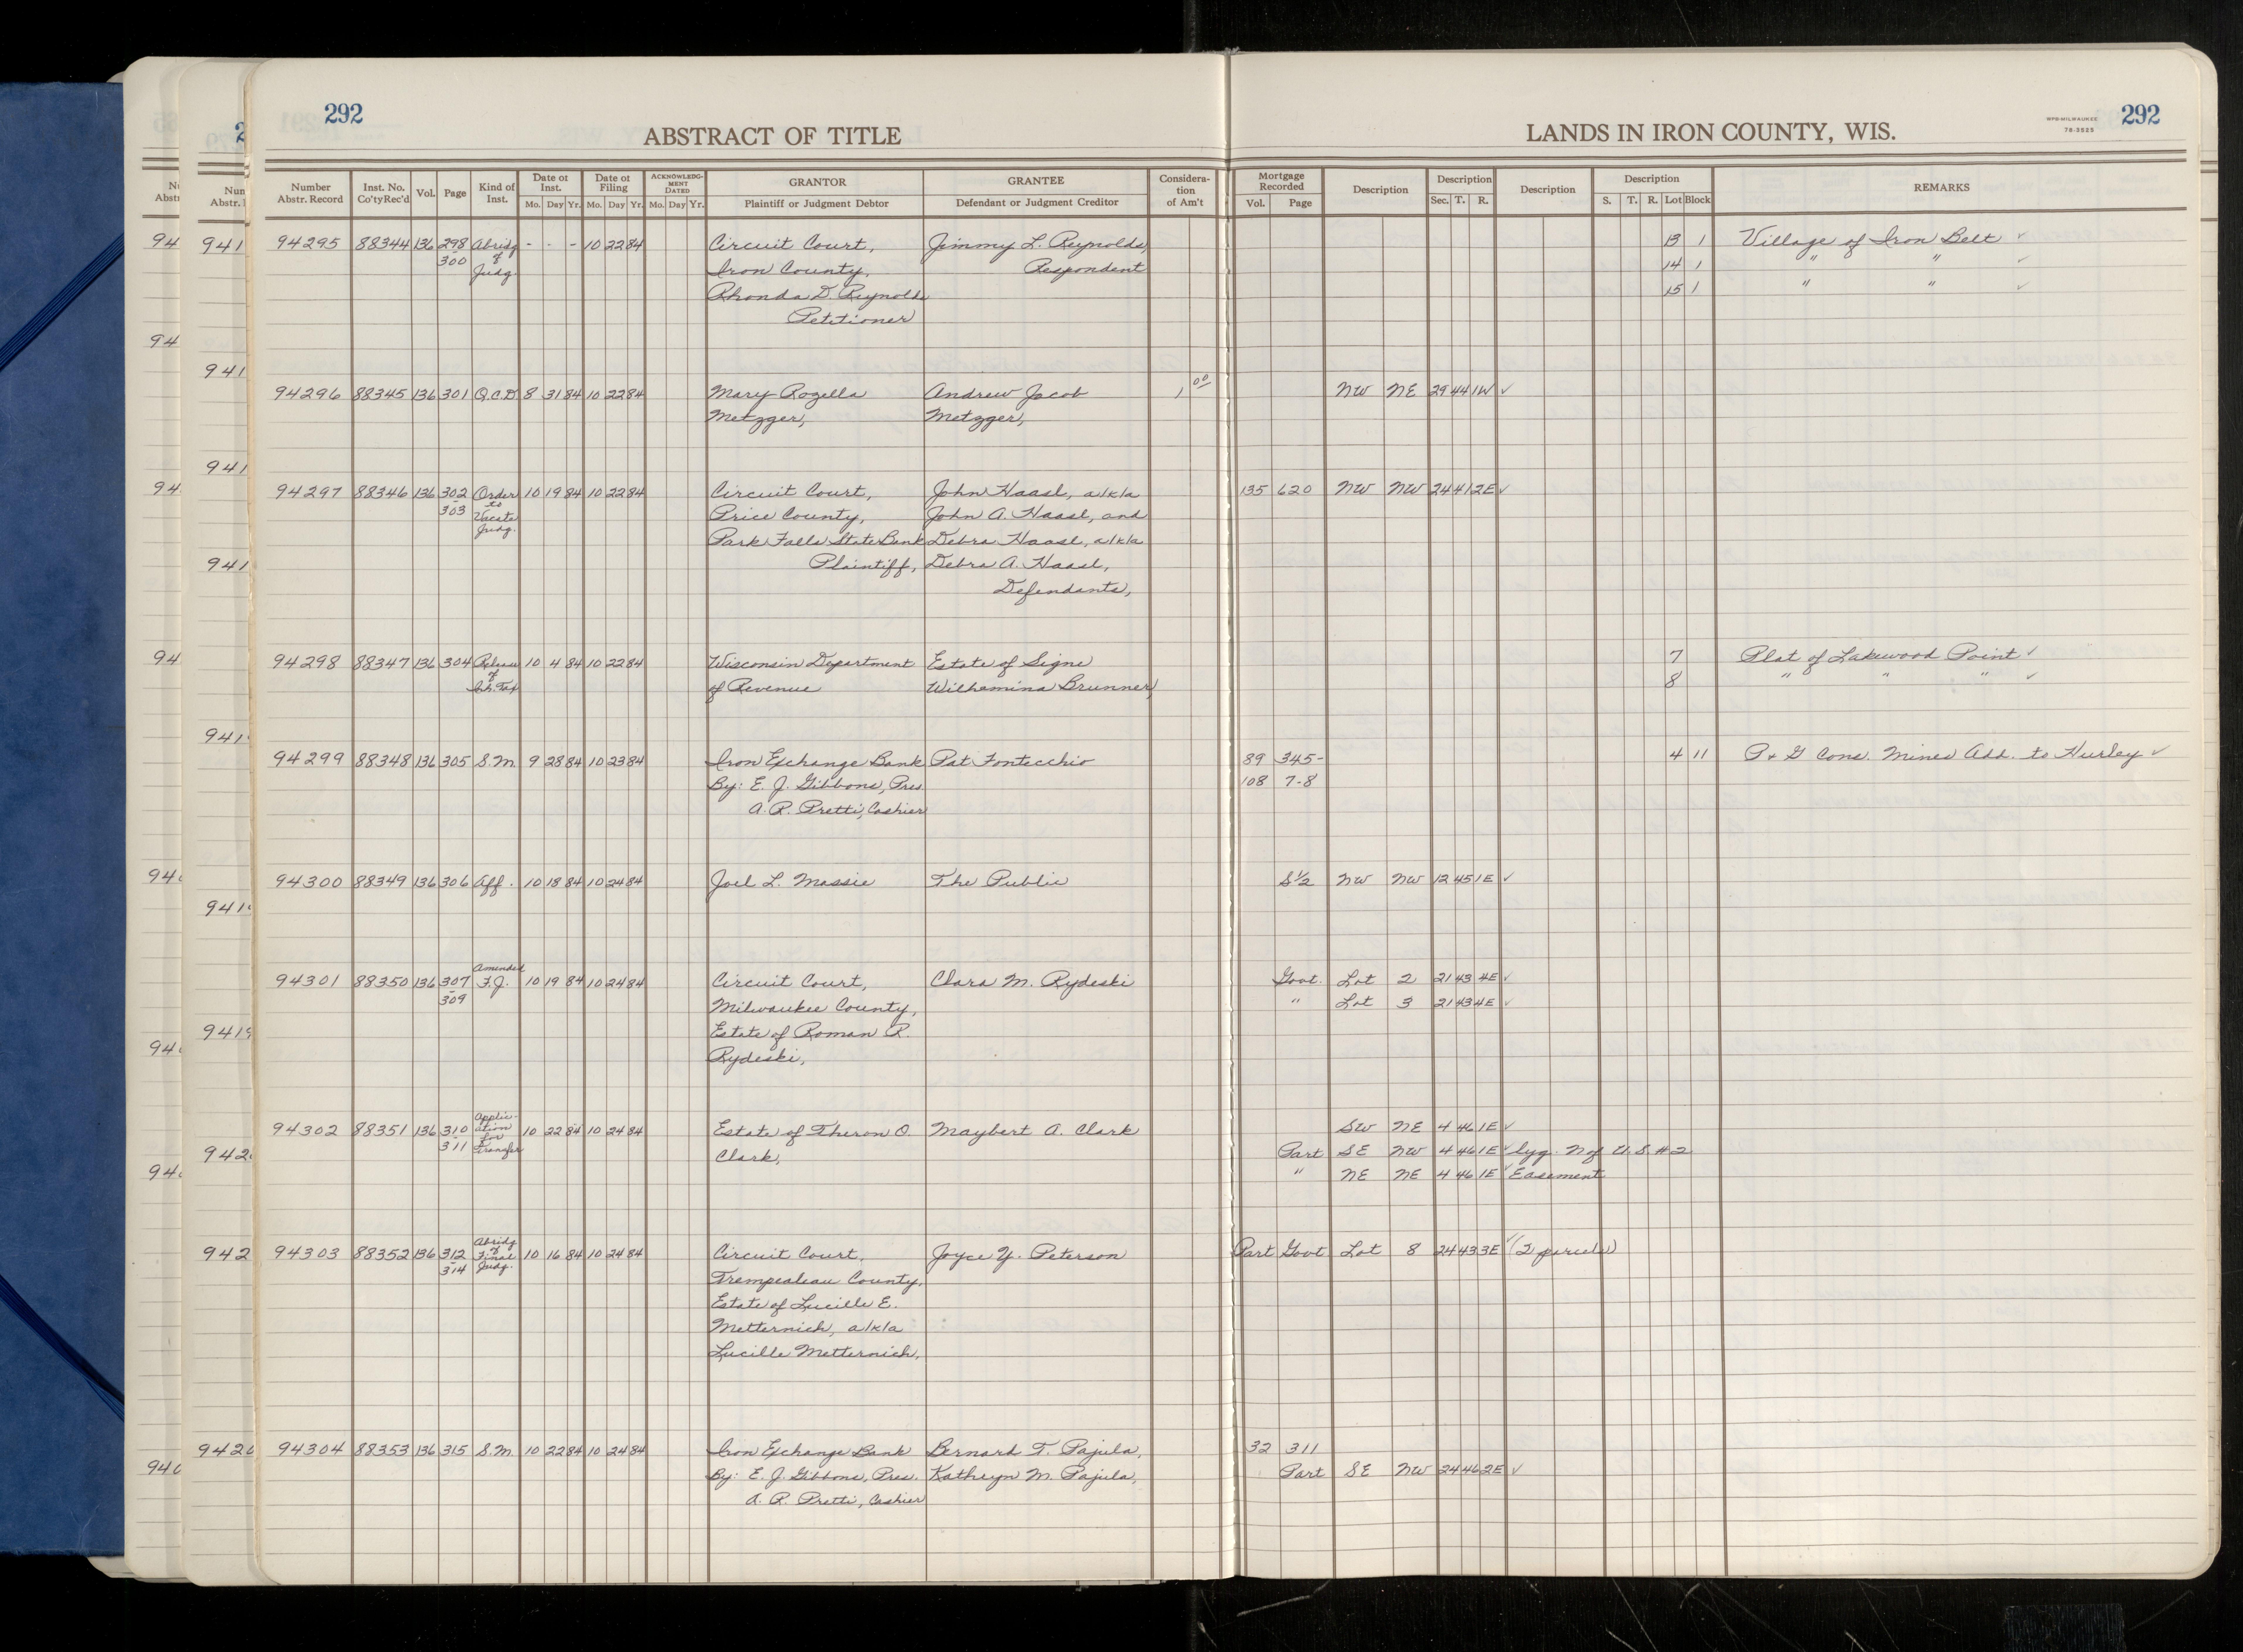 292
ABSTRACT OF TITLE
LANDS IN IRON COUNTY, WIS.
WPB-MILWAUKEE
78-3525
292
Number Abstr. Record
Inst. No. Co'ty Rec'd
Vol.
Page
Kind of Inst.
Date of Inst.
Mo. Day Yr.
Date of Filing
Mo. Day Yr.
ACKNOWLEDG-MENT DATED
Mo. Day Yr.
GRANTOR
Plaintiff or Judgment Debtor
GRANTEE
Defendant or Judgment Creditor
Considera-tion of Am't
Mortgage Recorded
Vol. Page
Description
Description
Sec. T. R.
Description
Description
S. T. R. Lot Block
REMARKS
94295 88344 136 298 Abridg - - - 10 22 84 Circuit Court, Jimmy L. Reynolds, 13 1 Village of Iron Belt ✓
- 300 of Judg. Iron County, Respondent 14 1 " " ✓
Rhonda D. Reynolds 15 1 " " ✓
Petitioner
94296 88345 136 301 Q.C.D. 8 31 84 10 22 84 Mary Rozella Andrew Jacob 1 00 NW NE 29 44 1W ✓
Metzger, Metzger,
94297 88346 136 302 Order 10 19 84 10 22 84 Circuit Court, John Haasl, a/k/a 135 620 NW NW 24 41 2E ✓
- 303 to Vacate Judg. Price County, John A. Haasl, and
Park Falls State Bank Debra Haasl, a/k/a
Plaintiff, Debra A. Haasl,
Defendants,
94298 88347 136 304 Release 10 4 84 10 22 84 Wisconsin Department Estate of Signe 7 Plat of Lakewood Point ✓
of Inh. Tax of Revenue Wilhemina Brunner, 8 " " " ✓
94299 88348 136 305 S.M. 9 28 84 10 23 84 Iron Exchange Bank Pat Fontecchio 89 345- 4 11 P + G Cons. Mines Add. to Hurley ✓
By: E. J. Gibbons, Pres. 108 7-8
A. R. Pretti, Cashier
94300 88349 136 306 Aff. 10 18 84 10 24 84 Joel L. Massie The Public S 1/2 NW NW 12 45 1E ✓
Amended
94301 88350 136 307 F.J. 10 19 84 10 24 84 Circuit Court, Clara M. Rydeski Govt. Lot 2 21 43 4E ✓
- 309 Milwaukee County, " Lot 3 21 43 4E ✓
Estate of Roman R.
Rydeski,
Applic-
94302 88351 136 310 ation for 10 22 84 10 24 84 Estate of Theron O. Maybert A. Clark SW NE 4 46 1E ✓
- 311 Transfer Clark, Part SE NW 4 46 1E ✓ lyg. N of U.S. #2
" NE NE 4 46 1E ✓ Easement
Abridg of
94303 88352 136 312 Final 10 16 84 10 24 84 Circuit Court, Joyce Y. Peterson Part Govt Lot 8 24 43 3E ✓ (2 parcels)
- 314 Judg. Trempealeau County,
Estate of Lucille E.
Metternich, a/k/a
Lucille Metternich,
94304 88353 136 315 S.M. 10 22 84 10 24 84 Iron Exchange Bank Bernard T. Pajula, 32 311
By: E. J. Gibbons, Pres. Kathryn M. Pajula, Part SE NW 24 46 2E ✓
A. R. Pretti, Cashier